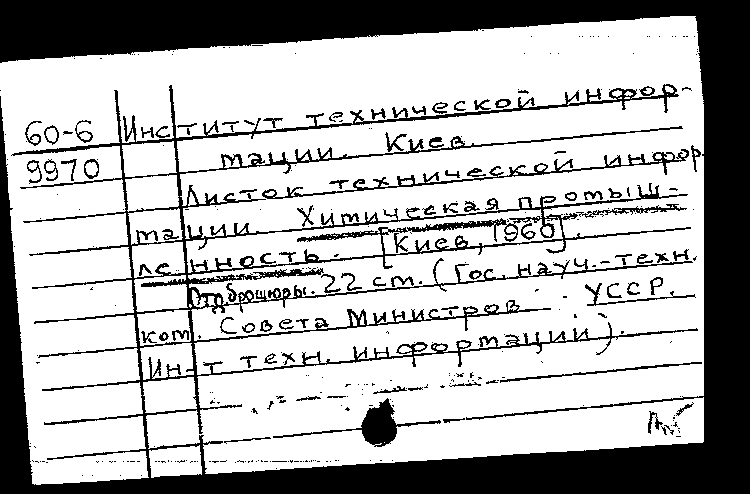 60-6 Институт технической инфор-
9970 мации. Киев.
Листок технической инфор
мации. Химическая промыш-
ленность. [Киев, 1960].
Отд. брошюры. 22 см. (Гос. науч.-техн.
ком. Совета Министров УССР.
Ин-т техн. информации).